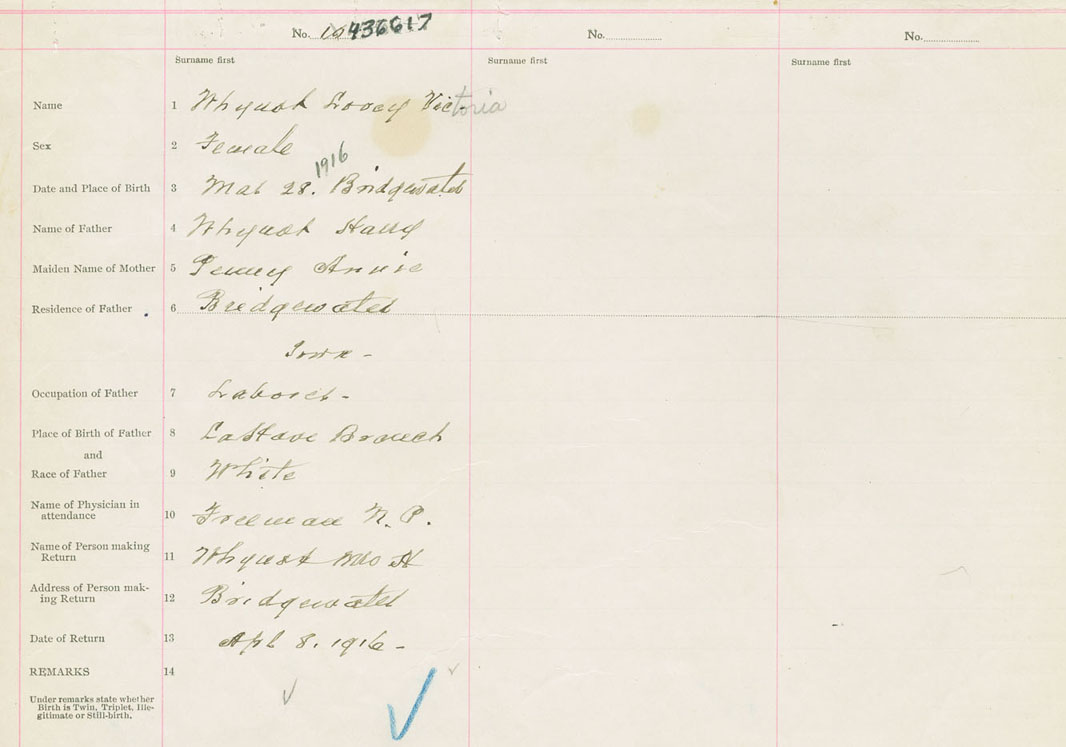 No. 10 436617 No. No.
Surname first Surname first Surname first
Name 1 Whynot Lovey Victoria
Sex 2 Female
1916
Date and Place of Birth 3 Mar 28. Bridgewater
Name of Father 4 Whynot Harry
Maiden Name of Mother 5 Penny Annie
Residence of Father 6 Bridgewater
Town -
Occupation of Father 7 Laborer -
Place of Birth of Father 8 LaHave Branch
and
Race of Father 9 White
Name of Physician in
attendance 10 Freeman N. P.
Name of Person making
Return 11 Whynot Mrs H
Address of Person mak-
ing Return 12 Bridgewater
Date of Return 13 Apl 8. 1916 -
REMARKS 14
Under remarks state whether
Birth is Twin, Triplet, Ille-
gitimate or Still-birth.